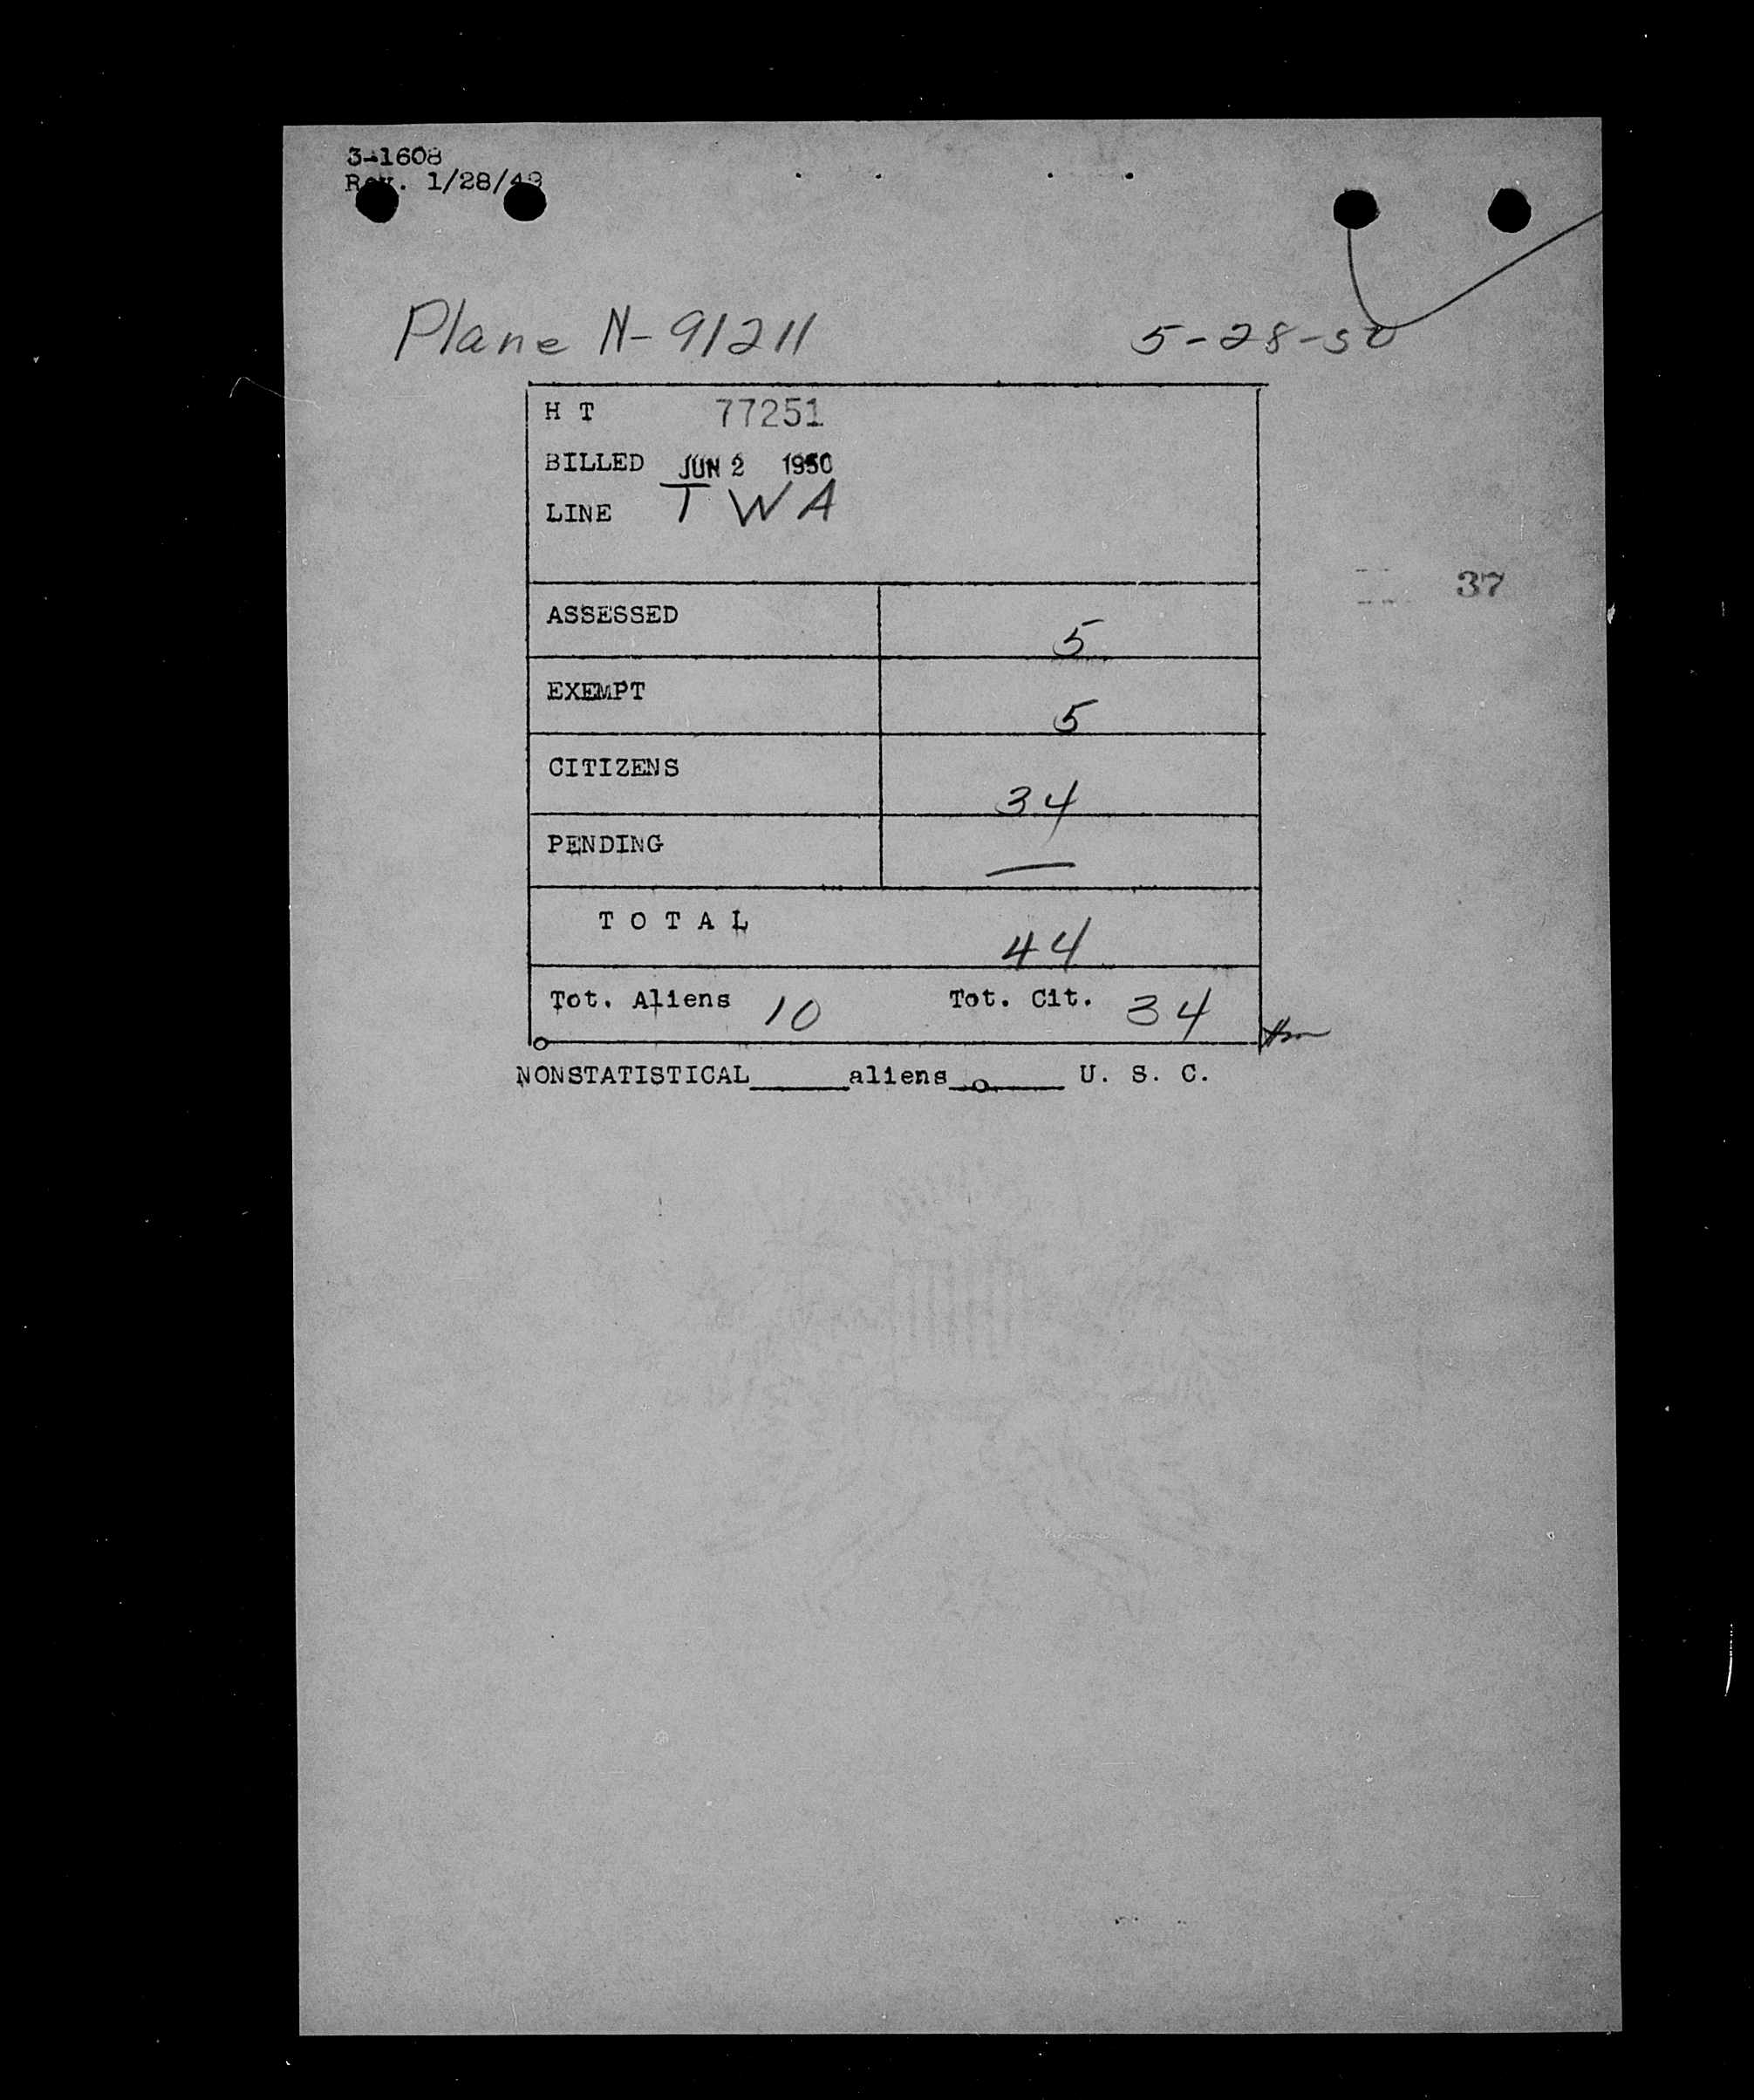 3-1608
Rev. 1/28/49
Plane N-91211 5-28-50
H T 77251
BILLED JUN 2 1950
LINE TWA
37
ASSESSED 5
EXEMPT 5
CITIZENS 34
PENDING —
TOTAL 44
Tot. Aliens 10 Tot. Cit. 34
NONSTATISTICAL______aliens______ U. S. C.